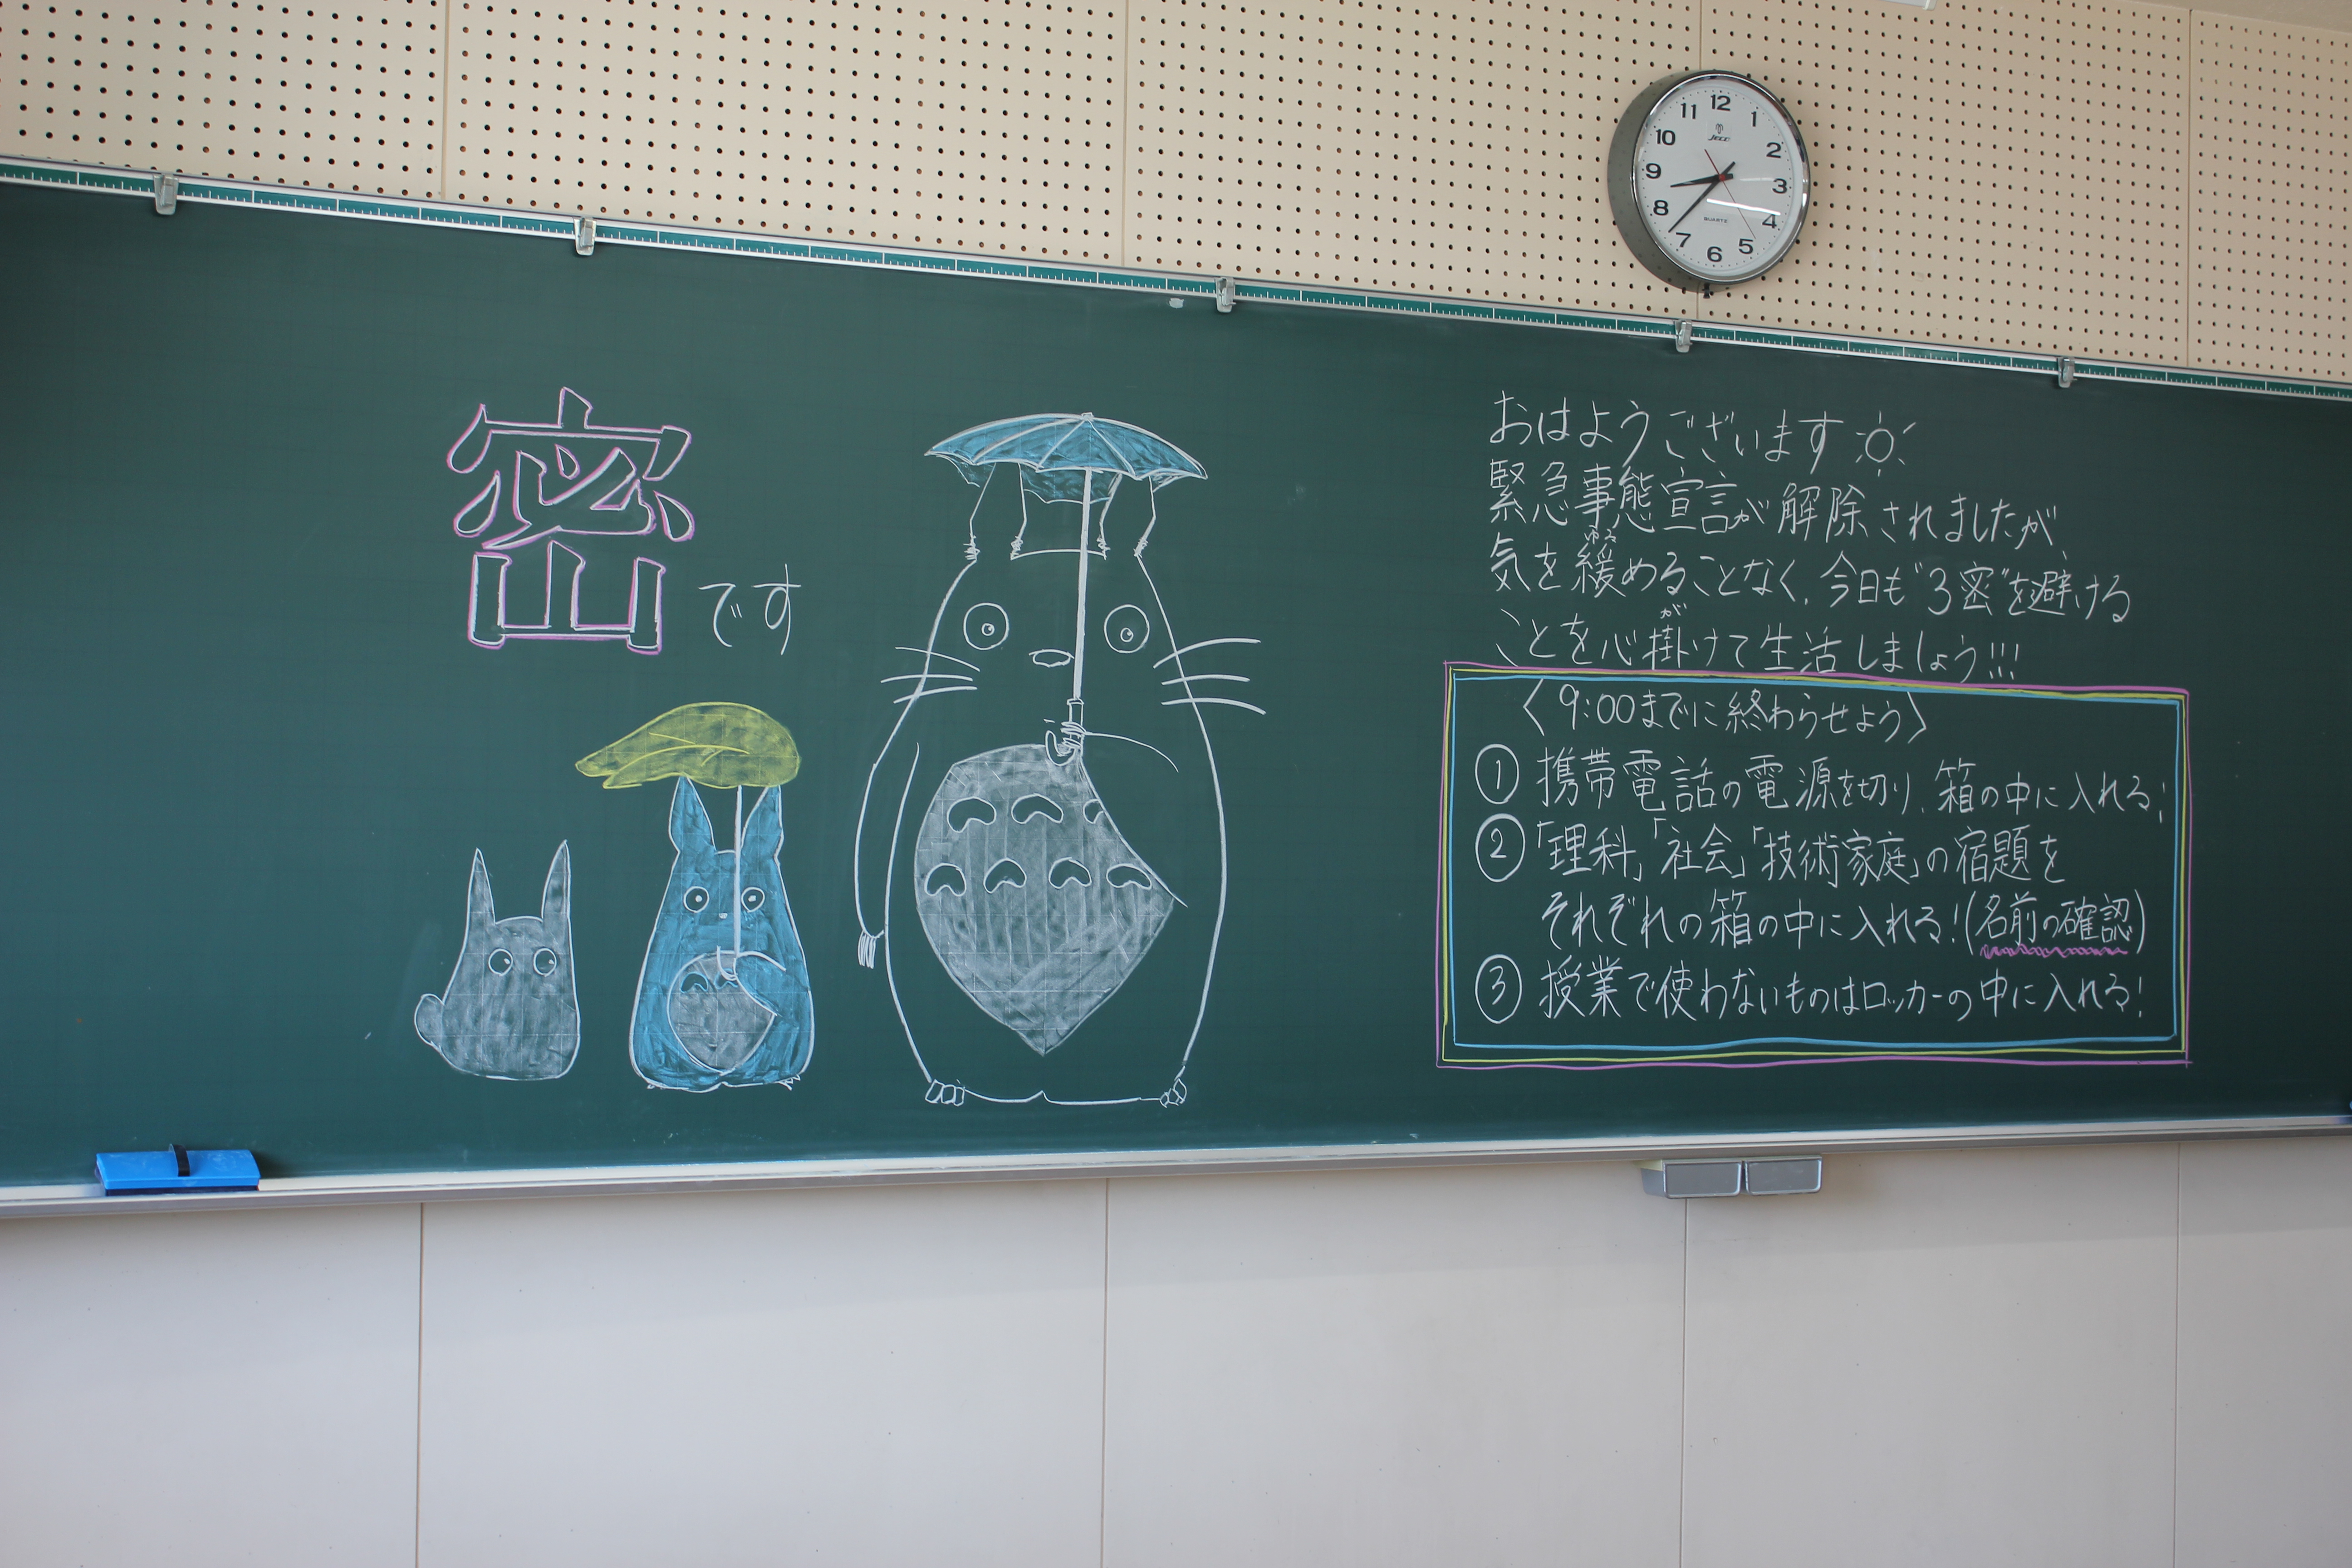 密です
おはようございます
緊急事態宣言が解除されましたが、
気を緩めることなく、今日も"3密"を避ける
ゆる
ことを心掛けて生活しましょう!!!
が
〈9:00までに終わらせよう〉
① 携帯電話の電源を切り、箱の中に入れる!
② 「理科」「社会」「技術家庭」の宿題を
それぞれの箱の中に入れる!(名前の確認)
③ 授業で使わないものはロッカーの中に入れる!
12
1
2
3
4
5
6
7
8
9
10
11
QUARTZ